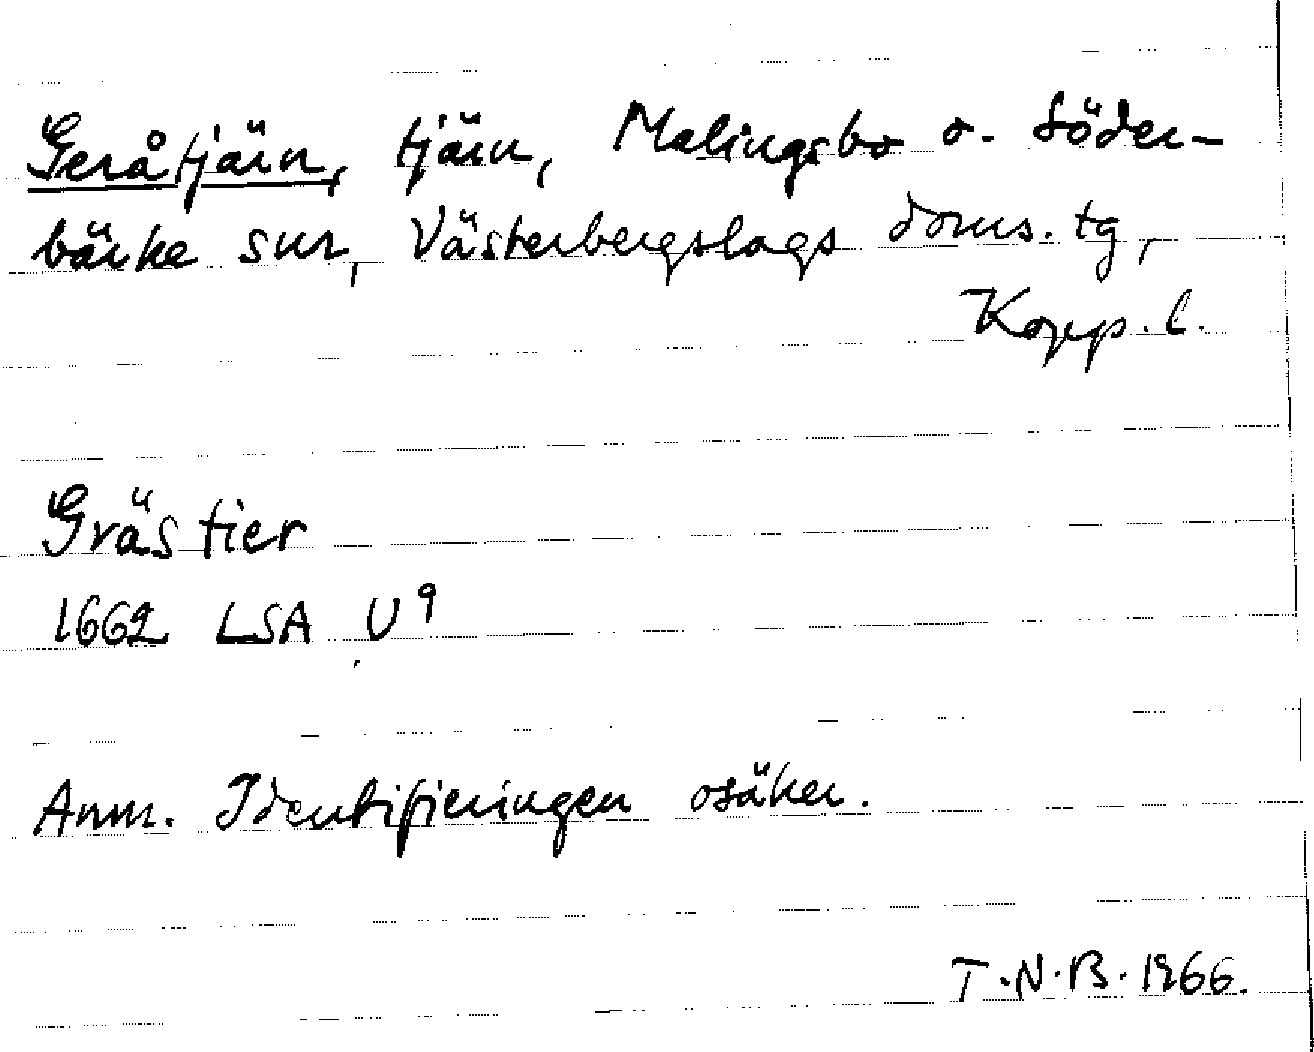 Geråtjärn, tjärn, Malingsbo o. Söder-
bärke snr, Västerbergslags doms. tg,
Kopp. l.
Grästier
1662 LSA U9
Anm. Identifieringen osäker.
T.N.B. 1966.